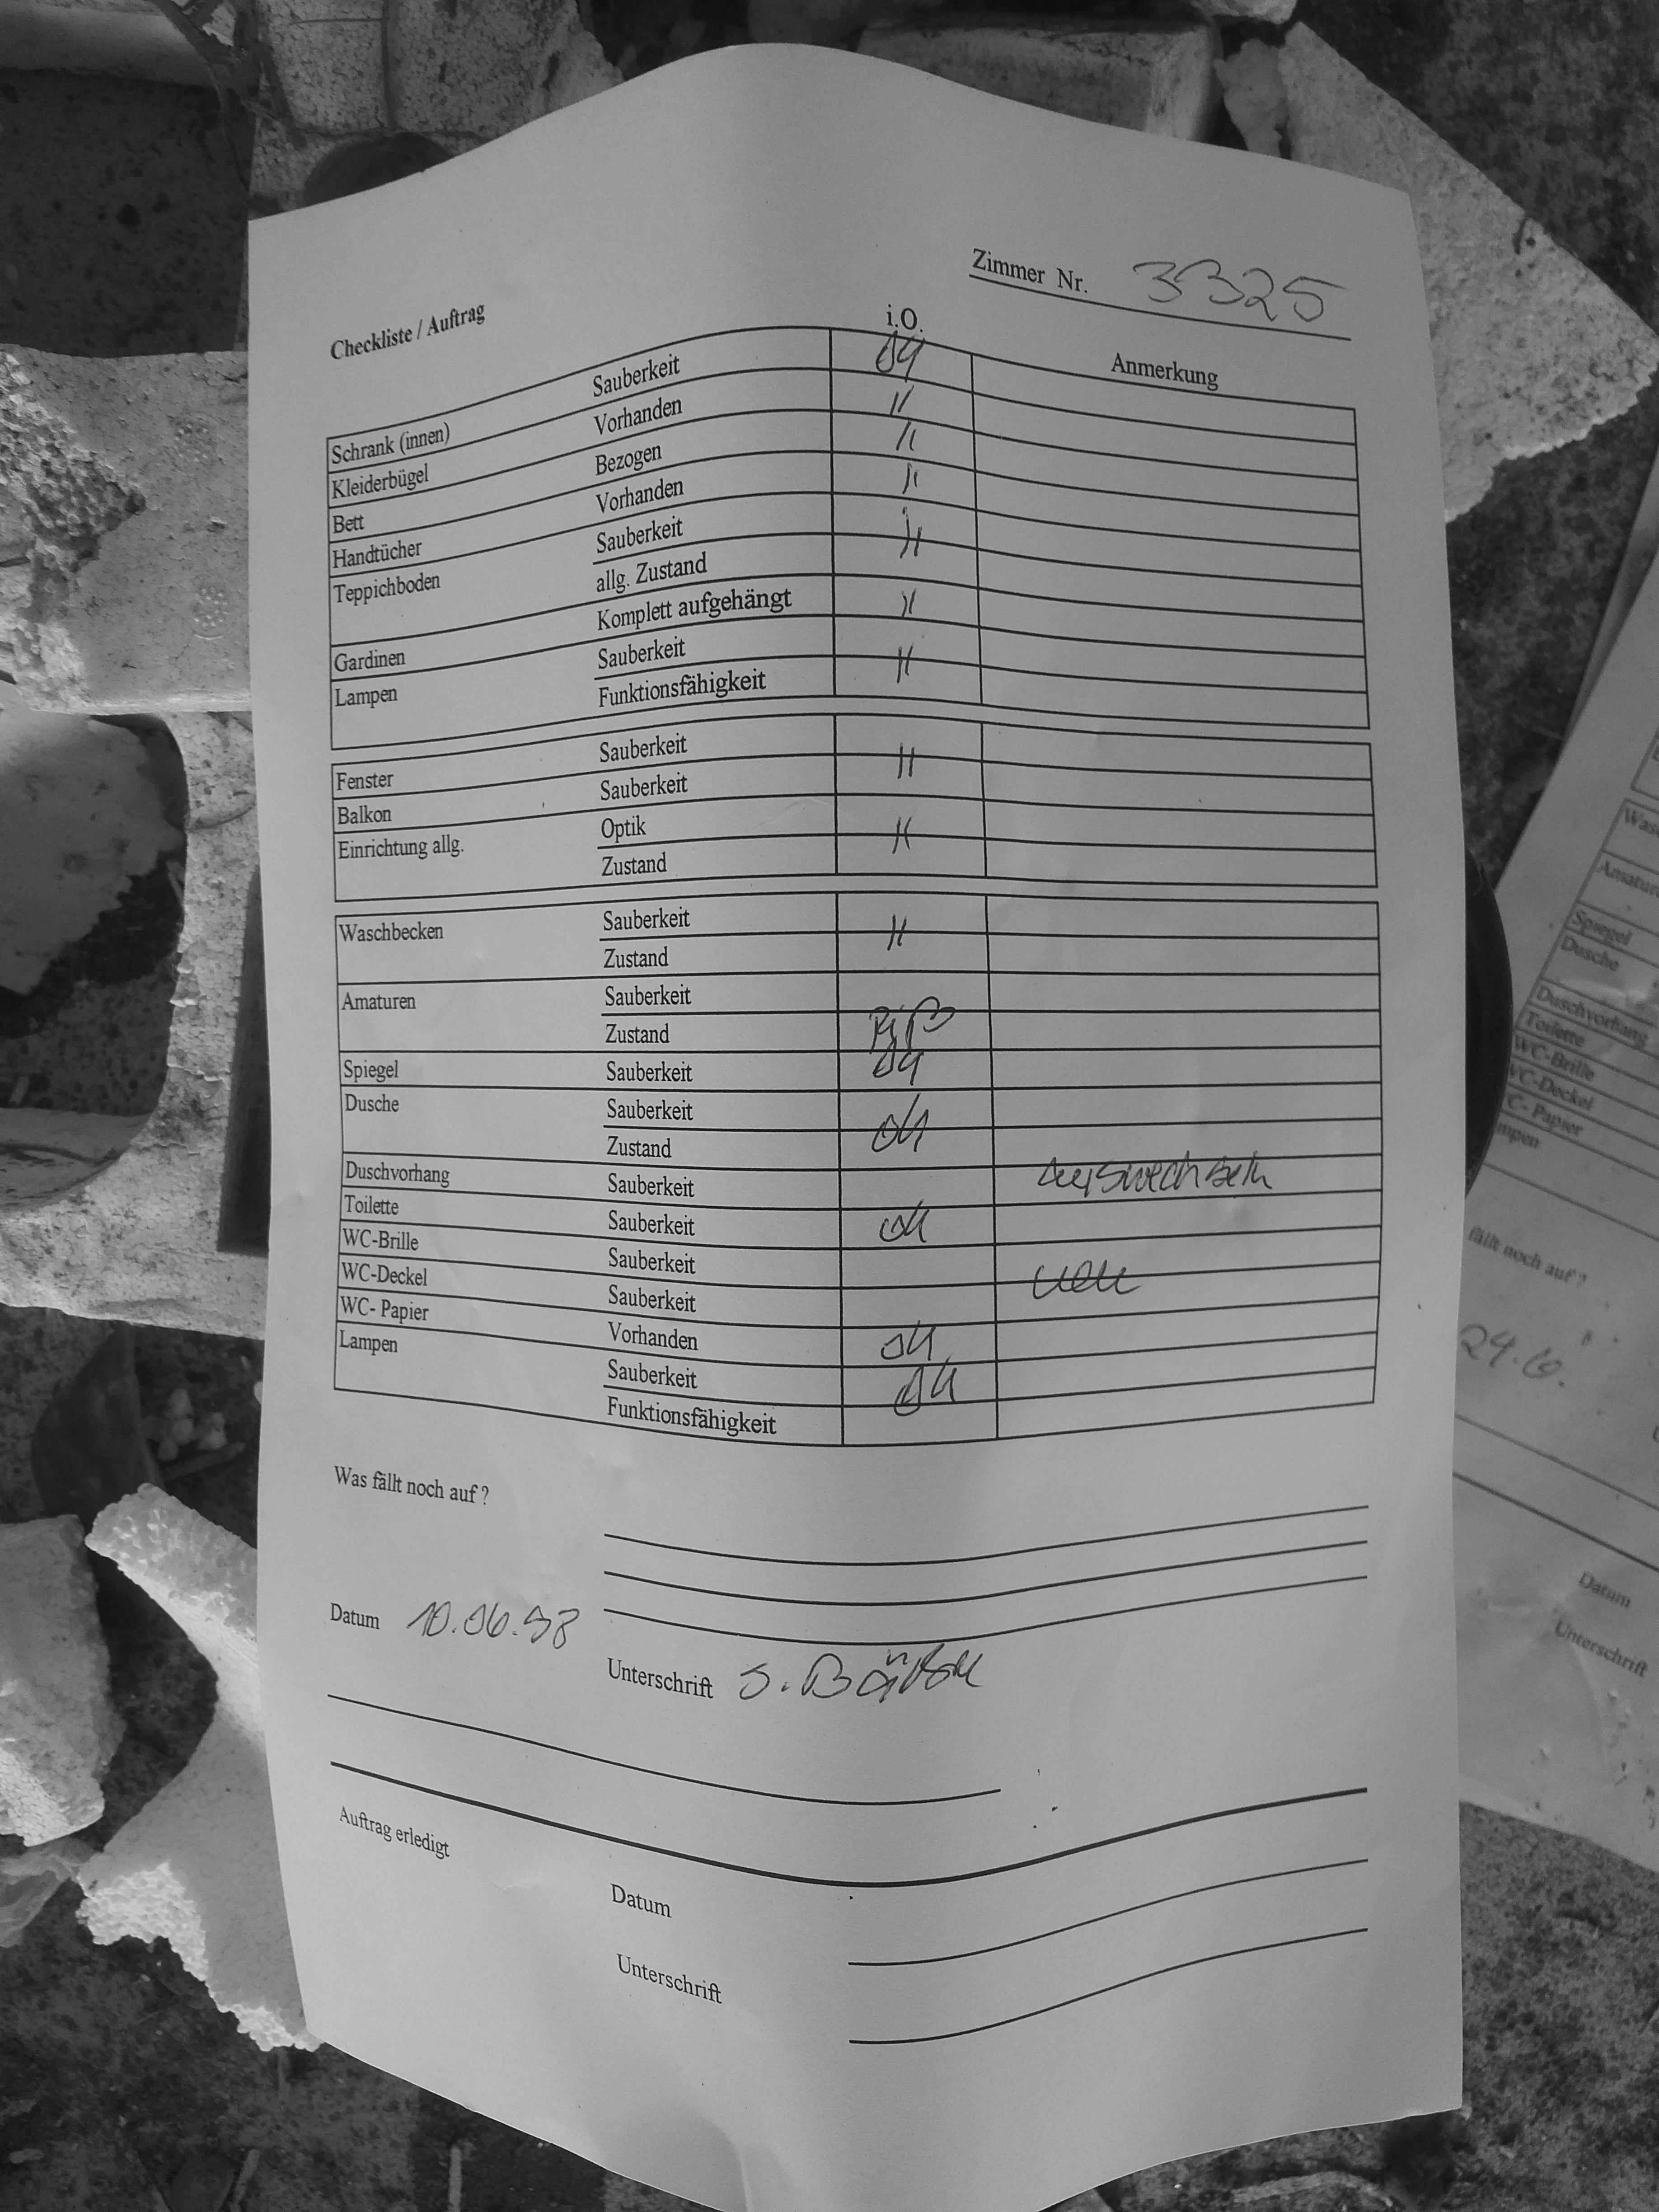 Zimmer Nr. 3325
Checkliste / Auftrag
i.O. Anmerkung
Schrank (innen) Sauberkeit ok
Kleiderbügel Vorhanden "
Bett Bezogen "
Handtücher Vorhanden "
Teppichboden Sauberkeit "
allg. Zustand
Gardinen Komplett aufgehängt "
Lampen Sauberkeit "
Funktionsfähigkeit
Fenster Sauberkeit "
Balkon Sauberkeit
Einrichtung allg. Optik "
Zustand
Waschbecken Sauberkeit "
Zustand
Amaturen Sauberkeit
Zustand Riß
Spiegel Sauberkeit ok
Dusche Sauberkeit ok
Zustand
Duschvorhang Sauberkeit auswechseln
Toilette Sauberkeit ok
WC-Brille Sauberkeit neu
WC-Deckel Sauberkeit
WC- Papier Vorhanden ok
Lampen Sauberkeit ok
Funktionsfähigkeit
Was fällt noch auf ?
Datum 10.06.98
Unterschrift S.
Auftrag erledigt
Datum
Unterschrift
Spiegel
Dusche
Duschvorhang
Toilette
WC-Brille
WC-Deckel
Papier
fällt noch auf ?
29.6.
Datum
Unterschrift